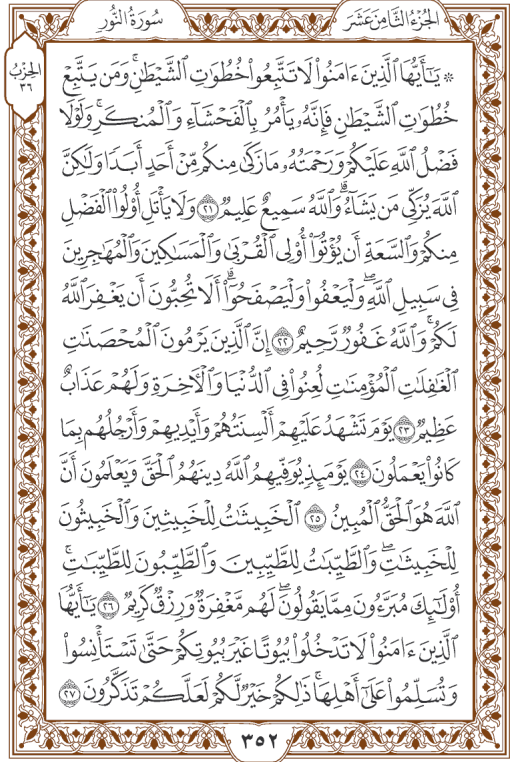 الجزء الثامن عشر
سورة النور
الحزب
٣٦
۞ يَٰٓأَيُّهَا ٱلَّذِينَ ءَامَنُواْ لَا تَتَّبِعُواْ خُطُوَٰتِ ٱلشَّيْطَٰنِۚ وَمَن يَتَّبِعْ
خُطُوَٰتِ ٱلشَّيْطَٰنِ فَإِنَّهُۥ يَأْمُرُ بِٱلْفَحْشَآءِ وَٱلْمُنكَرِۚ وَلَوْلَا
فَضْلُ ٱللَّهِ عَلَيْكُمْ وَرَحْمَتُهُۥ مَا زَكَىٰ مِنكُم مِّنْ أَحَدٍ أَبَدًا وَلَٰكِنَّ
ٱللَّهَ يُزَكِّي مَن يَشَآءُۗ وَٱللَّهُ سَمِيعٌ عَلِيمٌ ٢١ وَلَا يَأْتَلِ أُوْلُواْ ٱلْفَضْلِ
مِنكُمْ وَٱلسَّعَةِ أَن يُؤْتُوٓاْ أُوْلِي ٱلْقُرْبَىٰ وَٱلْمَسَٰكِينَ وَٱلْمُهَٰجِرِينَ
فِي سَبِيلِ ٱللَّهِۖ وَلْيَعْفُواْ وَلْيَصْفَحُوٓاْۗ أَلَا تُحِبُّونَ أَن يَغْفِرَ ٱللَّهُ
لَكُمْۚ وَٱللَّهُ غَفُورٌ رَّحِيمٌ ٢٢ إِنَّ ٱلَّذِينَ يَرْمُونَ ٱلْمُحْصَنَٰتِ
ٱلْغَٰفِلَٰتِ ٱلْمُؤْمِنَٰتِ لُعِنُواْ فِي ٱلدُّنْيَا وَٱلْأٓخِرَةِ وَلَهُمْ عَذَابٌ
عَظِيمٌ ٢٣ يَوْمَ تَشْهَدُ عَلَيْهِمْ أَلْسِنَتُهُمْ وَأَيْدِيهِمْ وَأَرْجُلُهُم بِمَا
كَانُواْ يَعْمَلُونَ ٢٤ يَوْمَئِذٍ يُوَفِّيهِمُ ٱللَّهُ دِينَهُمُ ٱلْحَقَّ وَيَعْلَمُونَ أَنَّ
ٱللَّهَ هُوَ ٱلْحَقُّ ٱلْمُبِينُ ٢٥ ٱلْخَبِيثَٰتُ لِلْخَبِيثِينَ وَٱلْخَبِيثُونَ
لِلْخَبِيثَٰتِۖ وَٱلطَّيِّبَٰتُ لِلطَّيِّبِينَ وَٱلطَّيِّبُونَ لِلطَّيِّبَٰتِۚ
أُوْلَٰٓئِكَ مُبَرَّءُونَ مِمَّا يَقُولُونَۖ لَهُم مَّغْفِرَةٌ وَرِزْقٌ كَرِيمٌ ٢٦ يَٰٓأَيُّهَا
ٱلَّذِينَ ءَامَنُواْ لَا تَدْخُلُواْ بُيُوتًا غَيْرَ بُيُوتِكُمْ حَتَّىٰ تَسْتَأْنِسُواْ
وَتُسَلِّمُواْ عَلَىٰٓ أَهْلِهَاۚ ذَٰلِكُمْ خَيْرٌ لَّكُمْ لَعَلَّكُمْ تَذَكَّرُونَ ٢٧
٣٥٢